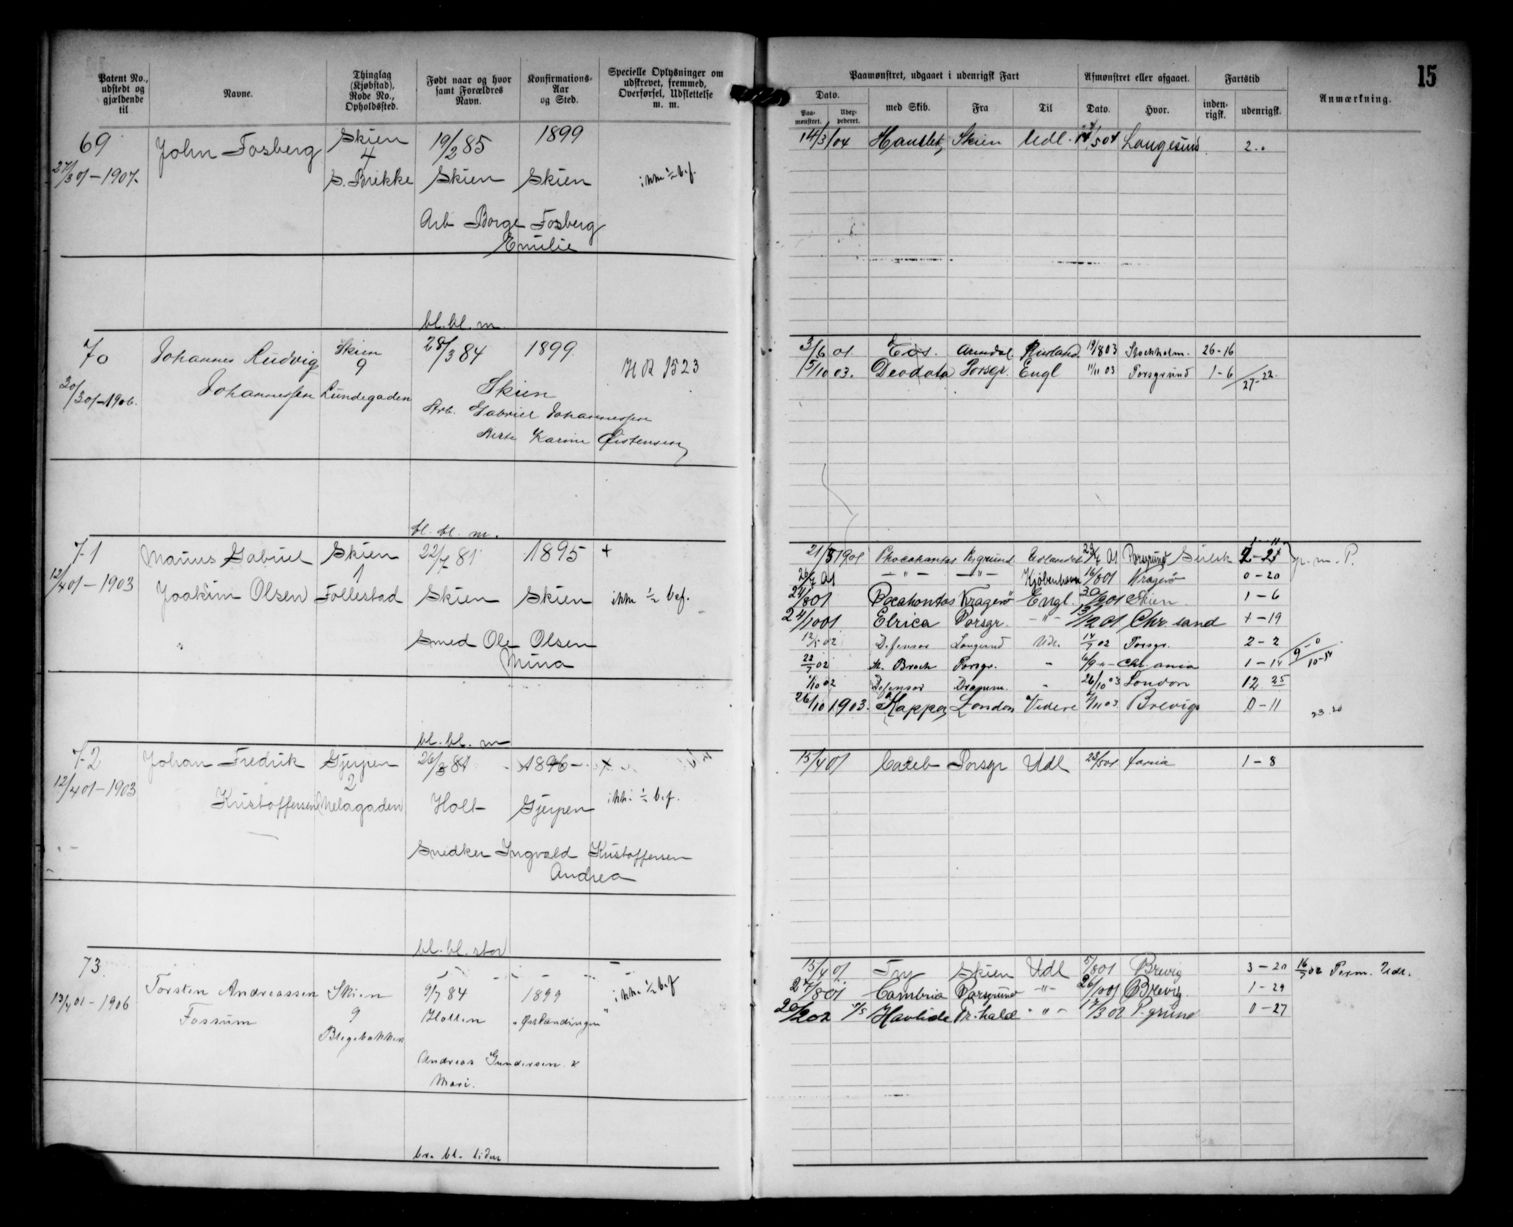 15
Patent No., udstedt og gjældende til
Navne.
Thinglag (Kjøbstad), Rode No., Opholdssted.
Født naar og hvor samt Forældres Navn.
Konfirmations-Aar og Sted.
Specielle Oplysninger om udskrevet, fremmed, Overførsel, Udslettelse m. m.
Paamønstret, udgaaet i udenrigsk Fart
Dato.
Paa-mønstret.
Udex-pederet.
med Skib.
Fra
Til
Afmønstret eller afgaaet.
Dato.
Hvor.
Fartstid
inden-rigsk.
udenrigsk.
Anmærkning.
69 John Fosberg Skien 19/2 85 1899
4
27/3 01-1907. S. Brekke Skien Skien ikke ½ bef.
Arb Borge Fosberg
Emilie
14/3 04 Skien Udl. Langesund 2
bl. bl. m.
70 Johannes Ludvig Skien 28/3 84 1899
9
20/3 01-1906. Johannessen Lundegaden Skien
Arb. Gabriel Johannessen
Karine Øistensen
3/6 01 Eos. Arendal Rusland 19/8 03 Stockholm. 26-16
5/10 03. Deodata Porsgr Engl 11/11 03 Porsgrund 1-6 27-22
bl. bl. m.
71 Marius Gabriel Skien 22/7 81 1895 +
1
12/4 01-1903 Joakim Olsen Follestad Skien Skien ikke ½ bef.
Smed Ole Olsen
Mina
21/5 1901 Phocahontas p. m. P.
26/7 01 -"- -"- Kjøbenhavn 16/8 01 Kragerø 0-20
24/8 01 Pocahontas Kragerø Engl. 30/9 01 Skien 1-6
24/10 01 Elrica Porsgr. -"- Chr. sand 4-19
12/5 02 Defensor Langesund Udl. 14/7 02 Porsgr. 2-2
22/7 02 M. Brock Porsgr. - Chr.ania 1-14
9-0
10-54
1/10 02 Defensor - 26/10 03 London 12 25
26/10 1903. Kappa, London Videre Brevig 0-11
23.20
bl. bl. m
72 Johan Fredrik Gjerpen 26/8 81 1896 - +
2
12/4 01-1903 Kristoffersen Melagaden Holt Gjerpen ikke ½ bef.
Snedker Ingvald Kristoffersen
Andrea
15/4 01 Caleb Porsgr Udl 1-8
bl. bl. stor
73.
13/4 01-1906 Torsten Andreassen Skien 9/7 84 1899 ikke ½ bef
Fossum 9 Holten
Blegebakken
Andreas Gundersen &
Mari.
15/4 01 Fry Skien Udl 5/8 01 Brevig 3-20 16/5 02 Perm. Udl.
24/8 01 Cambria Porsgrund -"- Brevig. 1-29
20/2 02 Havlide Fr. hald -"- 17/3 02 P. grund 0-27